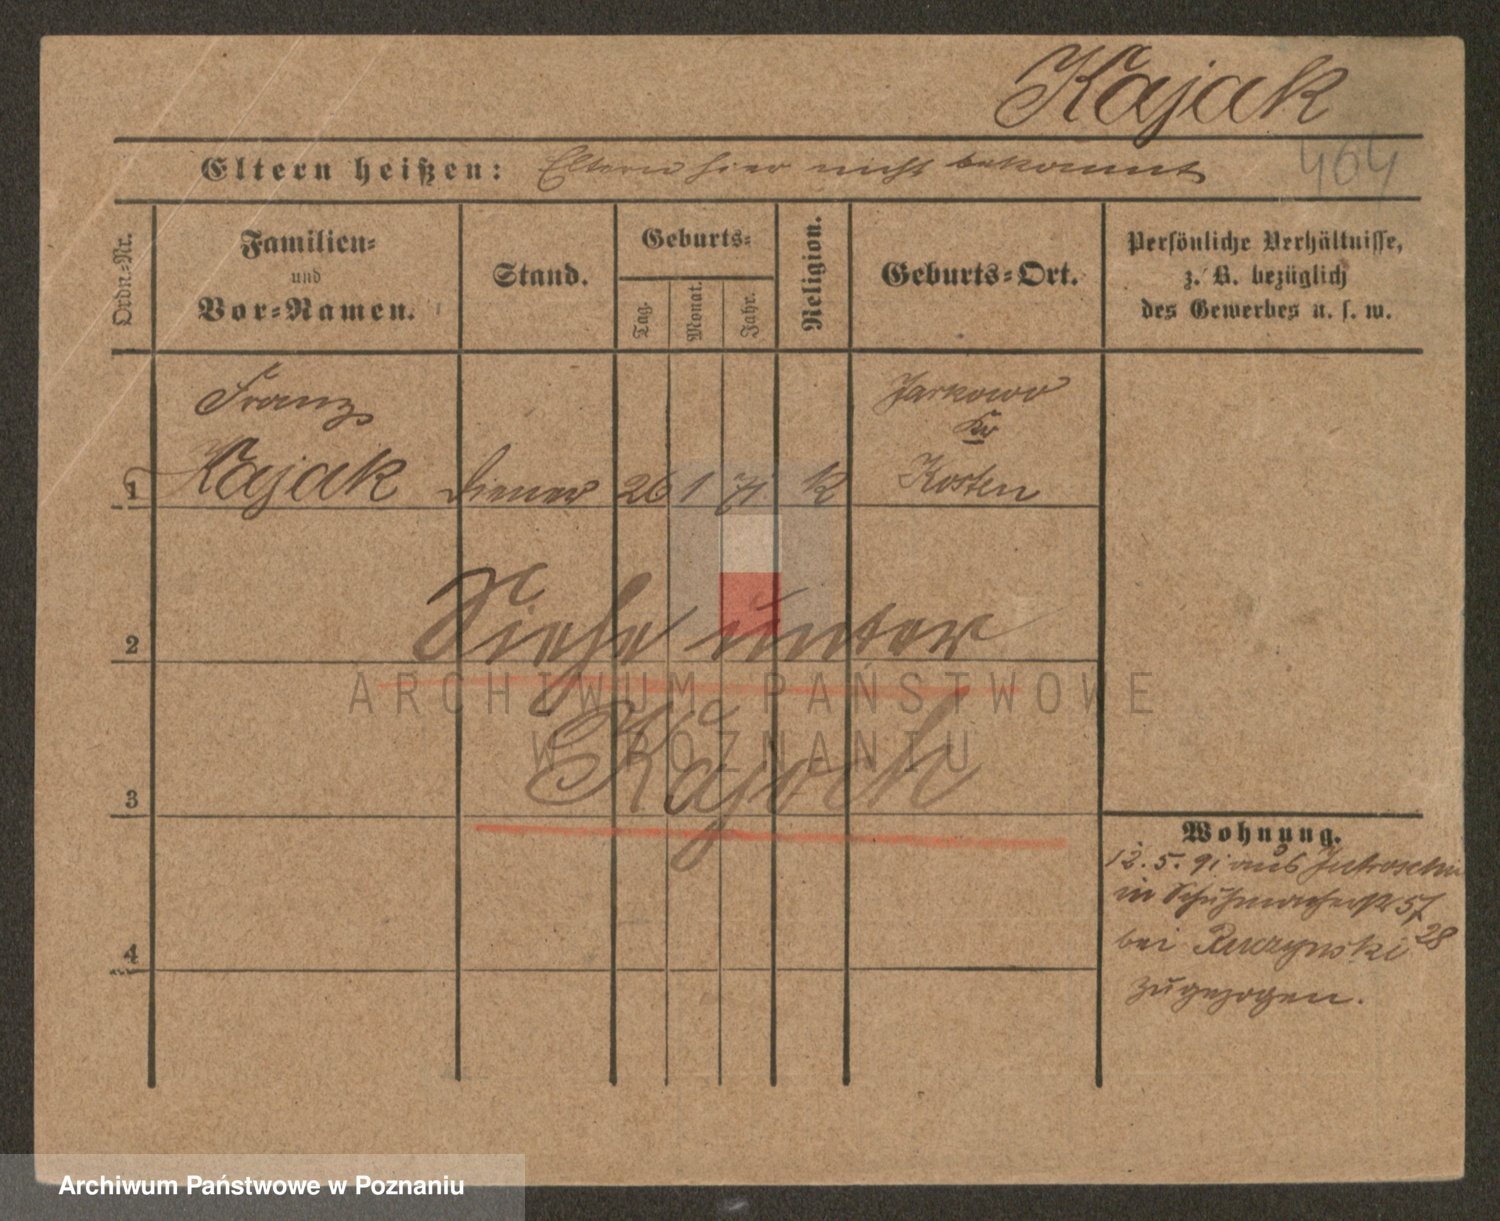 Kajak
464
Eltern heißen: Eltern hier nicht bekannt
Ordn.-Nr.
Familien-
und
Vor-Namen.
Stand.
Geburts-
Tag.
Monat.
Jahr.
Religion.
Geburts-Ort.
Persönliche Verhältnisse,
z. B. bezüglich
des Gewerbes u. s. w.
Franz
Jarkowo
Kr
1 Kajak Diener 26 1 71 K Kosten
2 Siehe unter
ARCHIWUM PAŃSTWOWE
W POZNANIU
3 Kajoch
4
Wohnung.
12. 5. 91 aus Jutroschin
in Schuhmacherstr 57
bei 28
zugezogen.
Archiwum Państwowe w Poznaniu